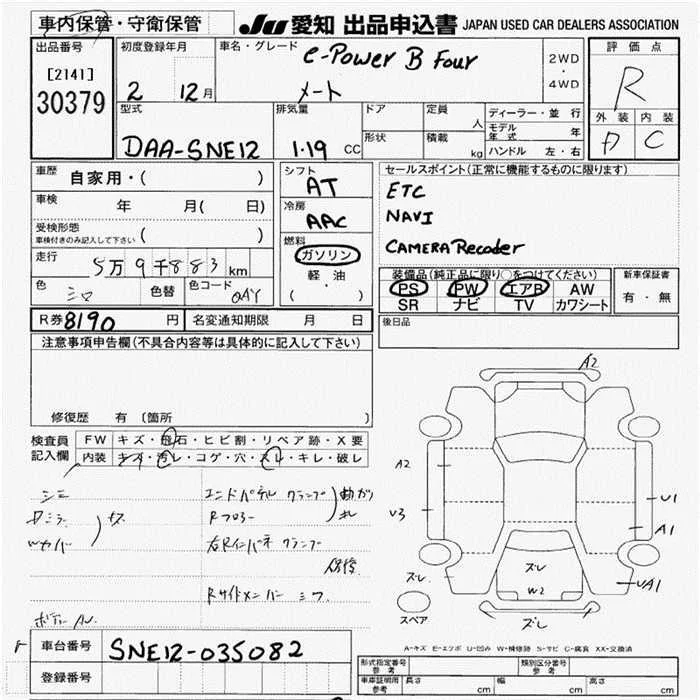 車内保管・守衛保管 JU 愛知 出品申込書 JAPAN USED CAR DEALERS ASSOCIATION
出品番号 初度登録年月 車名・グレード 評価点
[2141] e-Power B Four 2WD・4WD R
30379 2 12月 ノート
型式 排気量 ドア 定員 人 ディーラー・並行 外装 内装
DAA-SNE12 1.19 CC 形状 積載 kg モデル年式 年 D C
ハンドル 左・右
車歴 自家用・( ) シフト AT セールスポイント(正常に機能するものに限ります)
車検 年 月( 日) 冷房 AAC ETC
受検形態 車検付きのみ記入して下さい ( ) 燃料 NAVI
走行 5万9千883km ガソリン CAMERA Recoder
色 シロ 色替 色コード QAY 軽油 ( ・ )
装備品(純正品に限り○をつけてください) 新車保証書
PS PW エアB AW 有・無
SR ナビ TV カワシート
R券 8190 円 名変通知期限 月 日 後日品
注意事項申告欄(不具合内容等は具体的に記入して下さい)
修復歴 有 〔箇所
検査員記入欄 FW キズ・飛石・ヒビ割・リペア跡・X要
内装 キズ・汚レ・コゲ・穴・スレ・キレ・破レ
エンドパネル クランプ 曲ガリ
Rフロアー
右Rインパネ クランプ
修復
Rサイドメンバー シワ
A2
A2
V3
U1
A1
ズレ
ズレ
W2
UA1
ズレ
スペア
A-キズ E-エクボ U-凹み W-補修跡 S-サビ C-腐食 XX-交換済
車台番号 SNE12-035082
登録番号
形式指定番号 参考 類別区分番号 参考
車庫証明用 参考 長さ cm 幅 cm 高さ cm